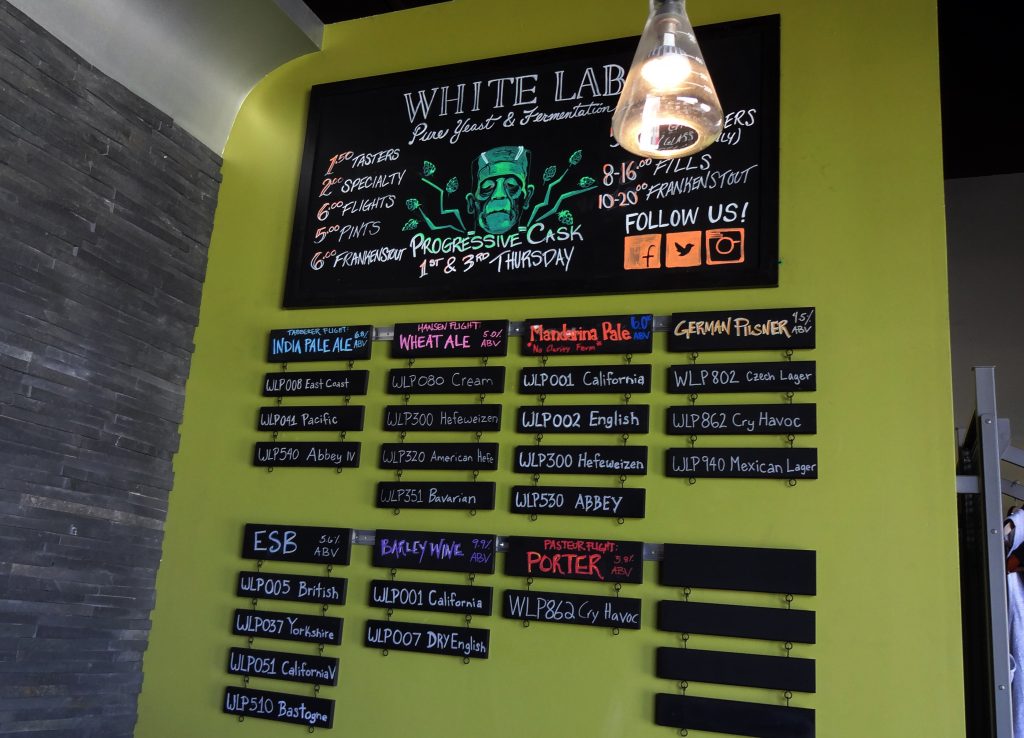 WHITE LAB
Pure Yeast & Fermentation
1.50 TASTERS
2.00 SPECIALTY
6.00 FLIGHTS
5.00 PINTS
6.00 FRANKENSTOUT
PROGRESSIVE CASK
1ST & 3RD THURSDAY
8-16.00 FILLS
10-20.00 FRANKENSTOUT
FOLLOW US!
f
TABBERER FLIGHT:
INDIA PALE ALE 6.8% ABV
WLP008 East Coast
WLP041 Pacific
WLP540 Abbey IV
HANSEN FLIGHT
WHEAT ALE 5.0% ABV
WLP080 Cream
WLP300 Hefeweizen
WLP320 American Hefe
WLP351 Bavarian
Mandarina Pale 6.0% ABV
"No Clarity Ferm"
WLP001 California
WLP002 English
WLP300 Hefeweizen
WLP530 ABBEY
GERMAN PILSNER 4.5% ABV
WLP802 Czech Lager
WLP862 Cry Havoc
WLP940 Mexican Lager
ESB 5.6% ABV
WLP005 British
WLP037 Yorkshire
WLP051 California V
WLP510 Bastogne
BARLEY WINE 9.9% ABV
WLP001 California
WLP007 DRY English
PASTEUR FLIGHT:
PORTER 5.8% ABV
WLP862 Cry Havoc